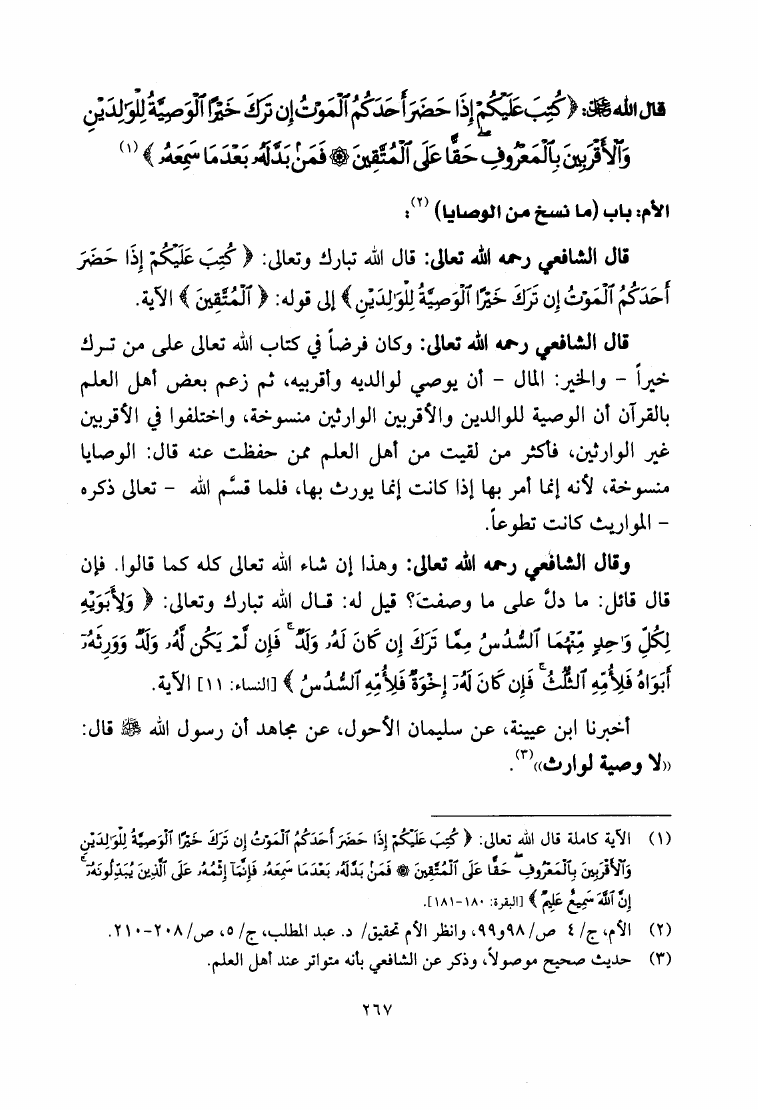 قال الله ﷻ: ﴿ كُتِبَ عَلَيْكُمْ إِذَا حَضَرَ أَحَدَكُمُ ٱلْمَوْتُ إِن تَرَكَ خَيْرًا ٱلْوَصِيَّةُ لِلْوَٰلِدَيْنِ
وَٱلْأَقْرَبِينَ بِٱلْمَعْرُوفِ ۖ حَقًّا عَلَى ٱلْمُتَّقِينَ ۞ فَمَنۢ بَدَّلَهُۥ بَعْدَمَا سَمِعَهُۥ ﴾ (١)
الأم: باب (ما نسخ من الوصايا) (٢):
قال الشافعي رحمه الله تعالى: قال الله تبارك وتعالى: ﴿ كُتِبَ عَلَيْكُمْ إِذَا حَضَرَ
أَحَدَكُمُ ٱلْمَوْتُ إِن تَرَكَ خَيْرًا ٱلْوَصِيَّةُ لِلْوَٰلِدَيْنِ ﴾ إلى قوله: ﴿ ٱلْمُتَّقِينَ ﴾ الآية.
قال الشافعي رحمه الله تعالى: وكان فرضاً في كتاب الله تعالى على من ترك
خيراً - والخير: المال - أن يوصي لوالديه وأقربيه، ثم زعم بعض أهل العلم
بالقرآن أن الوصية للوالدين والأقربين الوارثين منسوخة، واختلفوا في الأقربين
غير الوارثين، فأكثر من لقيت من أهل العلم ممن حفظت عنه قال: الوصايا
منسوخة، لأنه إنما أمر بها إذا كانت إنما يورث بها، فلما قسَّم الله - تعالى ذكره
- المواريث كانت تطوعاً.
وقال الشافعي رحمه الله تعالى: وهذا إن شاء الله تعالى كله كما قالوا. فإن
قال قائل: ما دلَّ على ما وصفت؟ قيل له: قال الله تبارك وتعالى: ﴿ وَلِأَبَوَيْهِ
لِكُلِّ وَٰحِدٍ مِّنْهُمَا ٱلسُّدُسُ مِمَّا تَرَكَ إِن كَانَ لَهُۥ وَلَدٌ ۚ فَإِن لَّمْ يَكُن لَّهُۥ وَلَدٌ وَوَرِثَهُۥٓ
أَبَوَاهُ فَلِأُمِّهِ ٱلثُّلُثُ ۚ فَإِن كَانَ لَهُۥٓ إِخْوَةٌ فَلِأُمِّهِ ٱلسُّدُسُ ﴾ [النساء: ١١] الآية.
أخبرنا ابن عيينة، عن سليمان الأحول، عن مجاهد أن رسول الله ﷺ قال:
«لا وصية لوارث» (٣).
(١) الآية كاملة قال الله تعالى: ﴿ كُتِبَ عَلَيْكُمْ إِذَا حَضَرَ أَحَدَكُمُ ٱلْمَوْتُ إِن تَرَكَ خَيْرًا ٱلْوَصِيَّةُ لِلْوَٰلِدَيْنِ
وَٱلْأَقْرَبِينَ بِٱلْمَعْرُوفِ ۖ حَقًّا عَلَى ٱلْمُتَّقِينَ ۞ فَمَنۢ بَدَّلَهُۥ بَعْدَمَا سَمِعَهُۥ فَإِنَّمَآ إِثْمُهُۥ عَلَى ٱلَّذِينَ يُبَدِّلُونَهُۥٓ ۚ
إِنَّ ٱللَّهَ سَمِيعٌ عَلِيمٌ ﴾ [البقرة: ١٨٠-١٨١].
(٢) الأم، ج/ ٤ ص/ ٩٨و٩٩، وانظر الأم تحقيق/ د. عبد المطلب، ج/ ٥، ص/ ٢٠٨-٢١٠.
(٣) حديث صحيح موصولاً، وذكر عن الشافعي بأنه متواتر عند أهل العلم.
٢٦٧